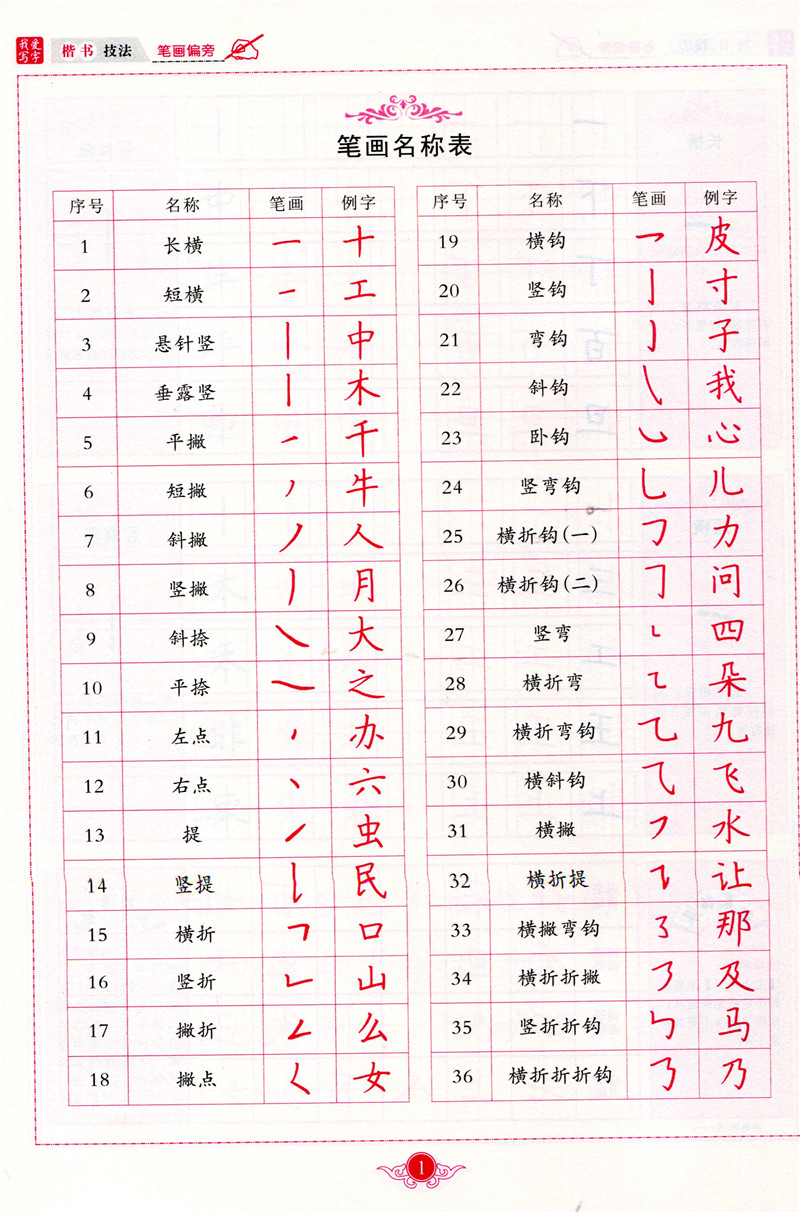 我爱写字 楷书 技法 笔画偏旁
笔画名称表
序号 名称 笔画 例字
1 长横 ㇐ 十
2 短横 ㇐ 工
3 悬针竖 丨 中
4 垂露竖 丨 木
5 平撇 ㇀ 千
6 短撇 丿 牛
7 斜撇 丿 人
8 竖撇 丿 月
9 斜捺 ㇏ 大
10 平捺 ㇏ 之
11 左点 丶 办
12 右点 丶 六
13 提 ㇀ 虫
14 竖提 ㇙ 民
15 横折 ㇕ 口
16 竖折 ㇗ 山
17 撇折 ㇜ 么
18 撇点 ㇛ 女
序号 名称 笔画 例字
19 横钩 ㇖ 皮
20 竖钩 亅 寸
21 弯钩 ㇁ 子
22 斜钩 ㇂ 我
23 卧钩 ㇃ 心
24 竖弯钩 ㇟ 儿
25 横折钩(一) ㇆ 力
26 横折钩(二) ㇆ 问
27 竖弯 ㇄ 四
28 横折弯 ㇍ 朵
29 横折弯钩 ㇈ 九
30 横斜钩 ⺄ 飞
31 横撇 ㇇ 水
32 横折提 ㇊ 让
33 横撇弯钩 ㇌ 那
34 横折折撇 ㇋ 及
35 竖折折钩 ㇉ 马
36 横折折折钩 ㇡ 乃
1